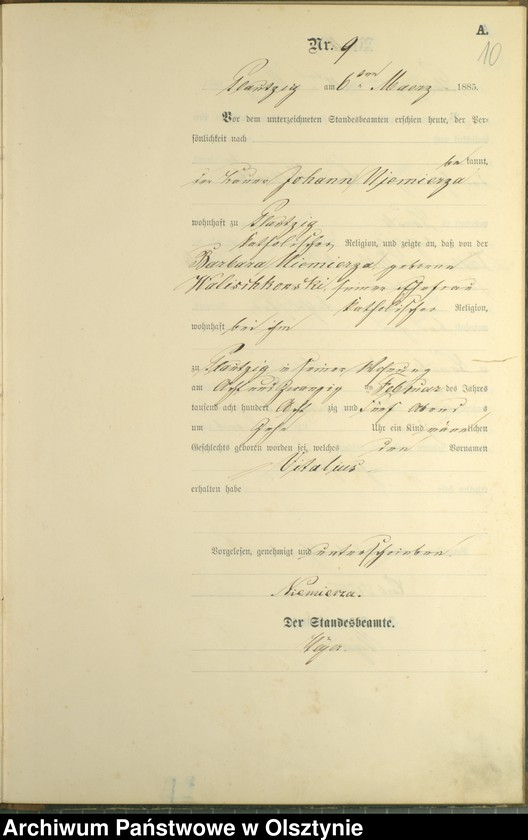 A.
10
Nr. 9
Plautzig am 6ten Maerz 1885.
Vor dem unterzeichneten Standesbeamten erschien heute, der Per-
sönlichkeit nach
be kannt,
der Bauer Johann Niemierza
wohnhaft zu Plautzig
katholischer Religion, und zeigte an, daß von der
Barbara Niemierza geborene
Walischkowski seiner Ehefrau
katholischer Religion,
wohnhaft bei ihm
zu Plautzig in seiner Wohnung
am Acht und zwanzig ten Februar des Jahres
tausend acht hundert Acht zig und fünf Abend s
um Uhr ein Kind männlichen
Geschlechts geboren worden sei, welches den Vornamen
Vitalius
erhalten habe
Vorgelesen, genehmigt und unterschrieben
Niemierza.
Der Standesbeamte.
Archiwum Państwowe w Olsztynie